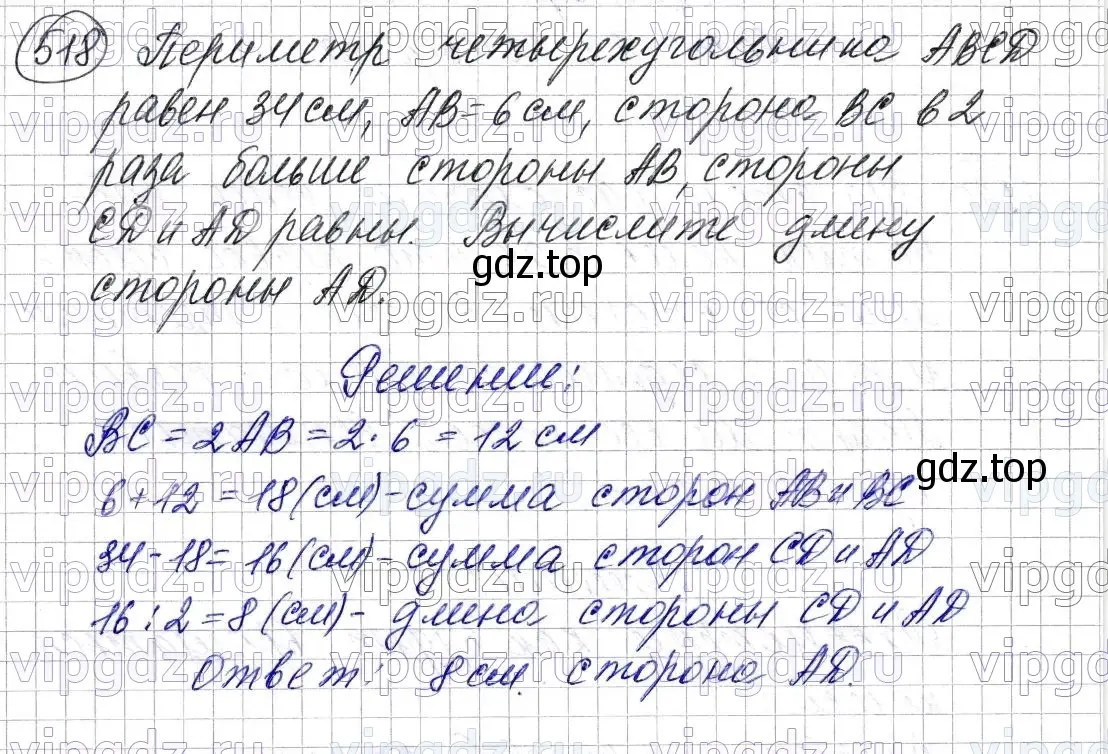 518 Периметр четырехугольника ABCD
равен 34 см, AB = 6 см, сторона BC в 2
раза больше стороны AB, стороны
CD и AD равны. Вычислите длину
стороны AD.
gdz.top
Решение:
BC = 2AB = 2 · 6 = 12 см
gdz.top
6 + 12 = 18 (см) - сумма сторон AB и BC
34 - 18 = 16 (см) - сумма сторон CD и AD
16 : 2 = 8 (см) - длина стороны CD и AD
Ответ: 8 см сторона AD.
vipgdz.ru